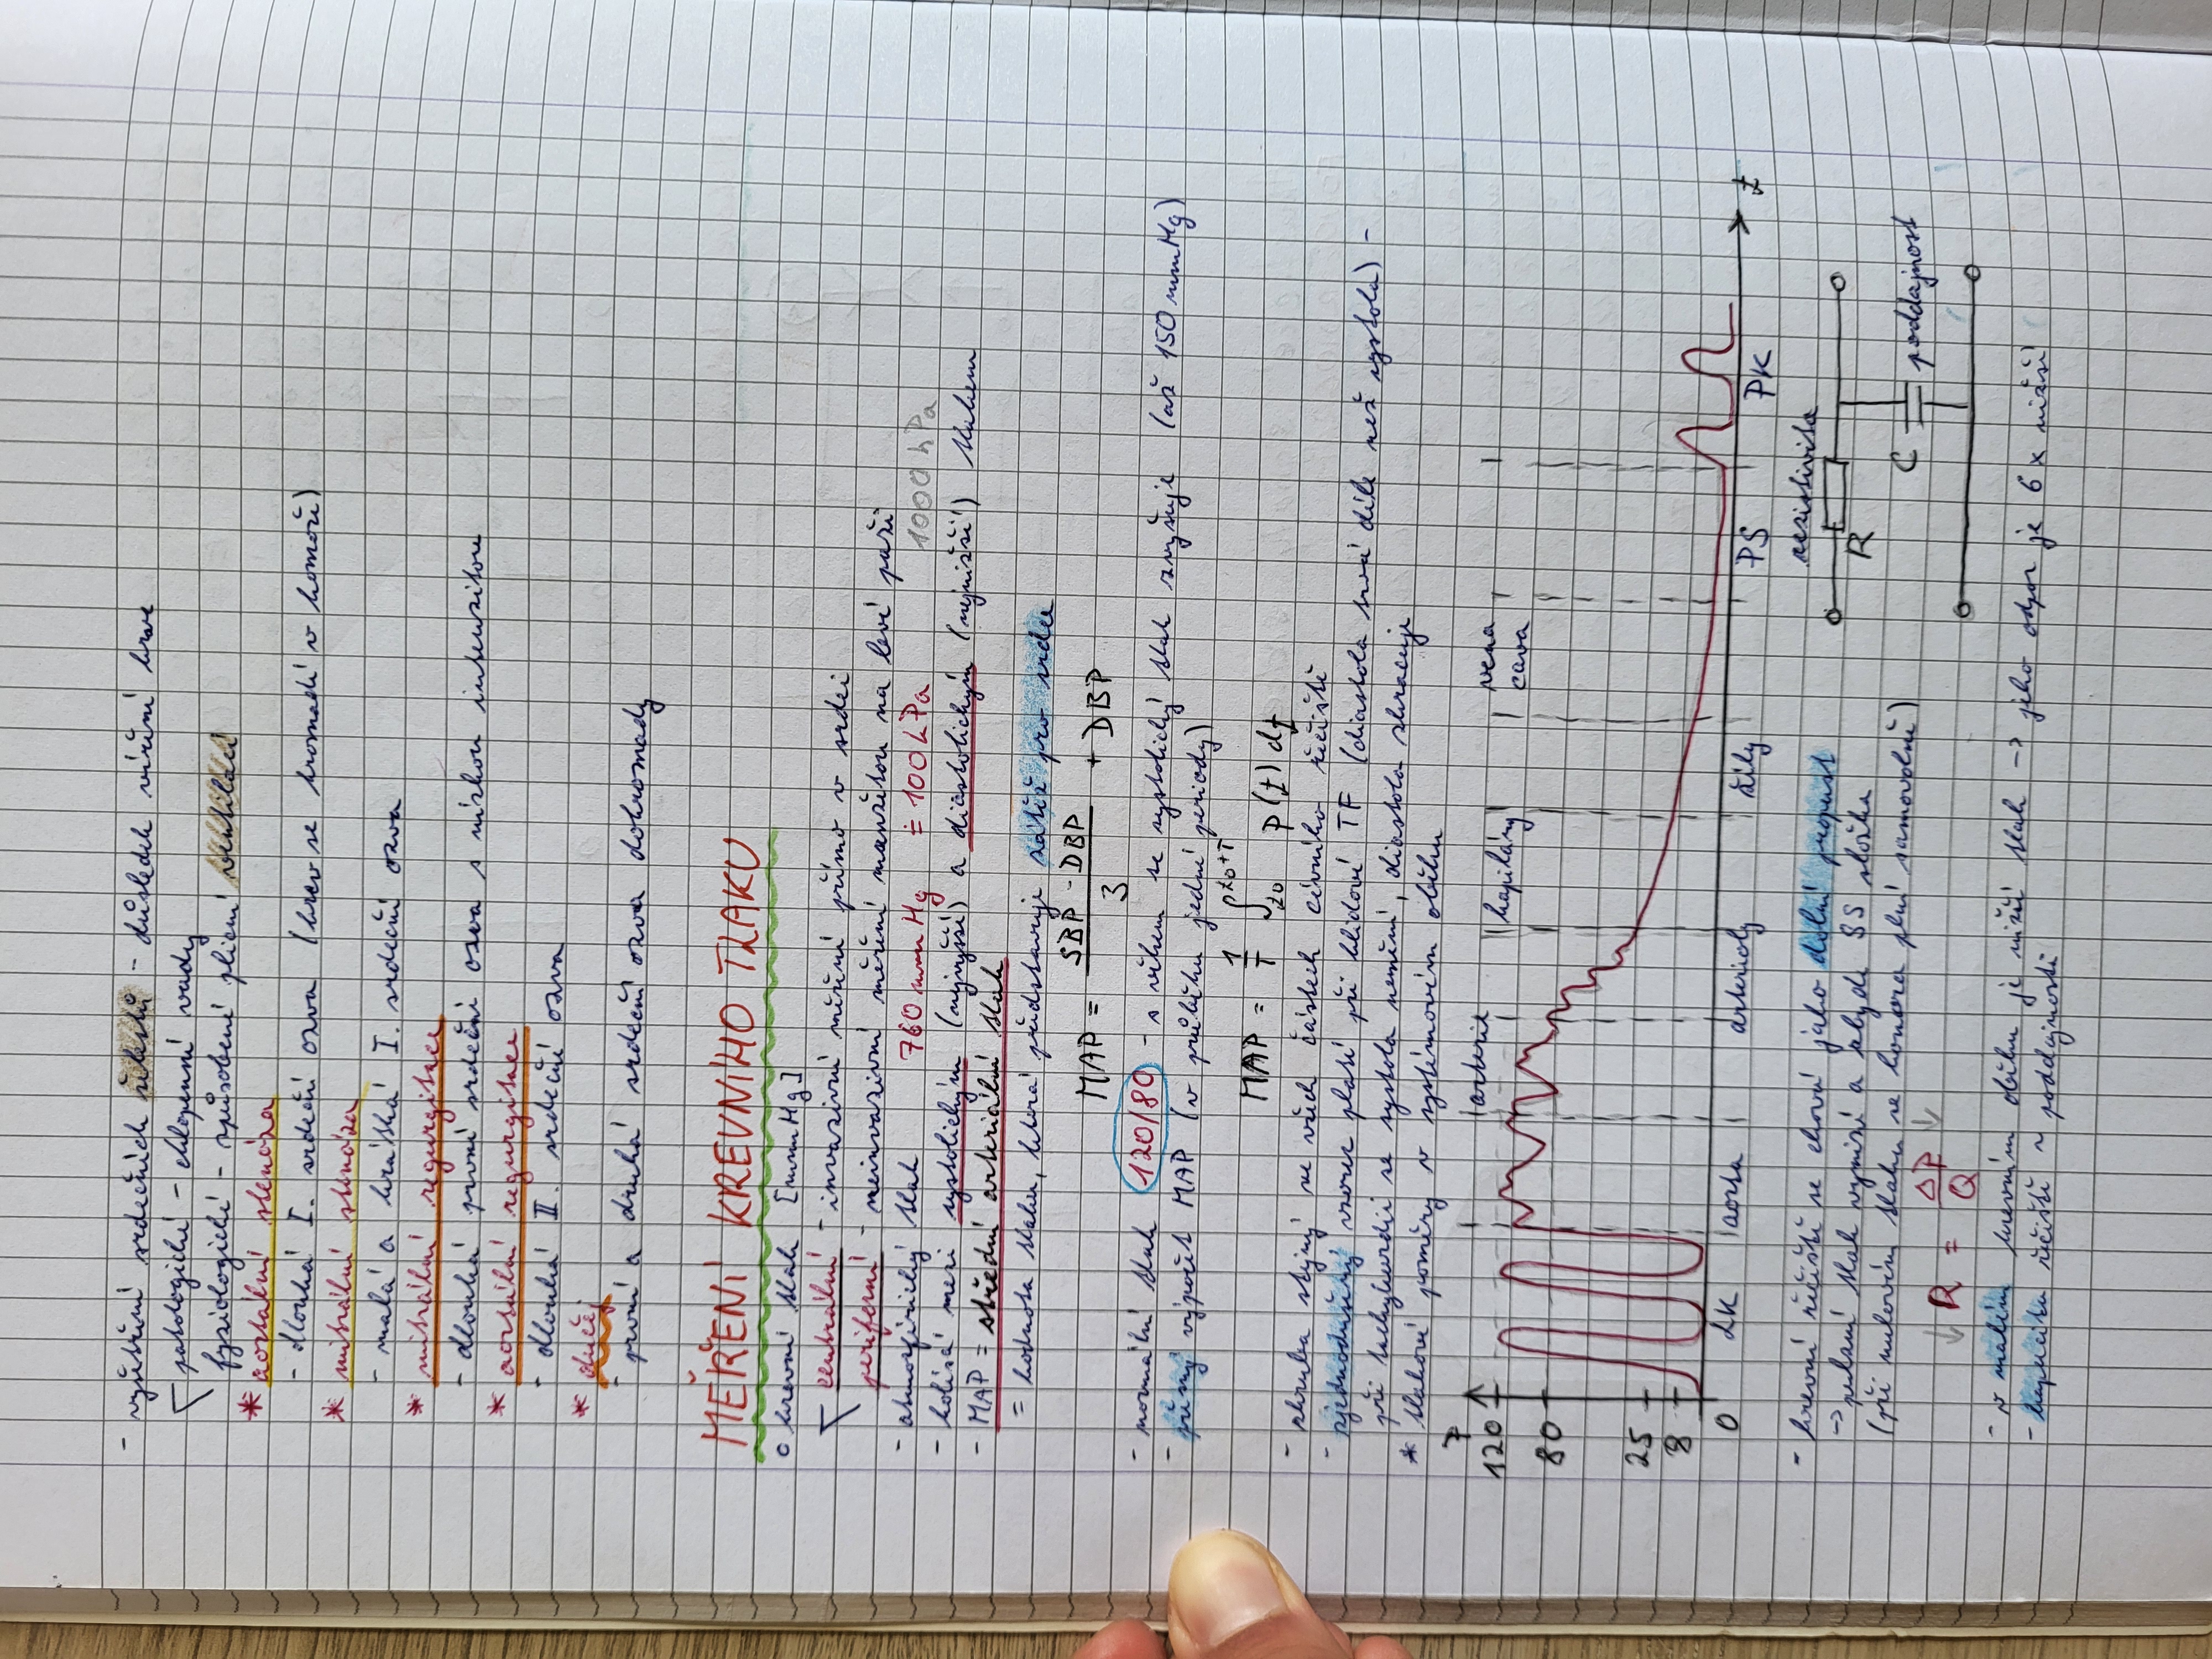 - vyšetření srdečních šelestů - důsledek víření krve
patologické - chlopenní vady
fyziologické - způsobené plicní ventilací
* aortální stenóza
- dlouhá I. srdeční ozva (krev se hromadí v komoře)
* mitrální stenóza
- malá a krátká I. srdeční ozva
* mitrální regurgitace
- dlouhá první srdeční ozva s nízkou intenzitou
* aortální regurgitace
- dlouhá II. srdeční ozva
* dučej
- první a druhá srdeční ozva dohromady
MĚŘENÍ KREVNÍHO TLAKU
o krevní tlak [mmHg]
centrální - invazivní měření přímo v srdci
periferní - neinvazivní měření manžetou na levé paži
- atmosférický tlak 760 mmHg ≐ 100 hPa 1000 hPa
- kolísá mezi systolickým (nejvyšší) a diastolickým (nejnižší) tlakem
- MAP = střední arteriální tlak
= hodnota tlaku, která představuje zátěž pro srdce
MAP = (SBP - DBP)/3 + DBP
- normální tlak 120/80 - s věkem se systolický tlak zvyšuje (až 150 mmHg)
- přesný výpočet MAP (v průběhu jedné periody)
MAP = 1/T ∫ t0 t0+T p(t) dt
- zhruba stejný ve všech částech cévního řečiště
- zjednodušený vzorec platí při klidové TF (diastola trvá déle než systola) -
při tachykardii se systola nemění, diastola zkracuje
* tlakové poměry v systémovém oběhu
P
120
80
25
8
0
arterie
kapiláry
vena
cava
LK
aorta
arterioly
žíly
PS
PK
t
- krevní řečiště se chová jako dolní propust
-> pulzní tlak vymizí a zbyde SS složka
(při nulovém tlaku se komora plní samovolně)
↓ R = ΔP/Q ↓
rezistivita
R
C poddajnost
- v malém krevním oběhu je nižší tlak -> jeho odpor je 6x nižší
- kapacita řečiště ~ poddajnosti